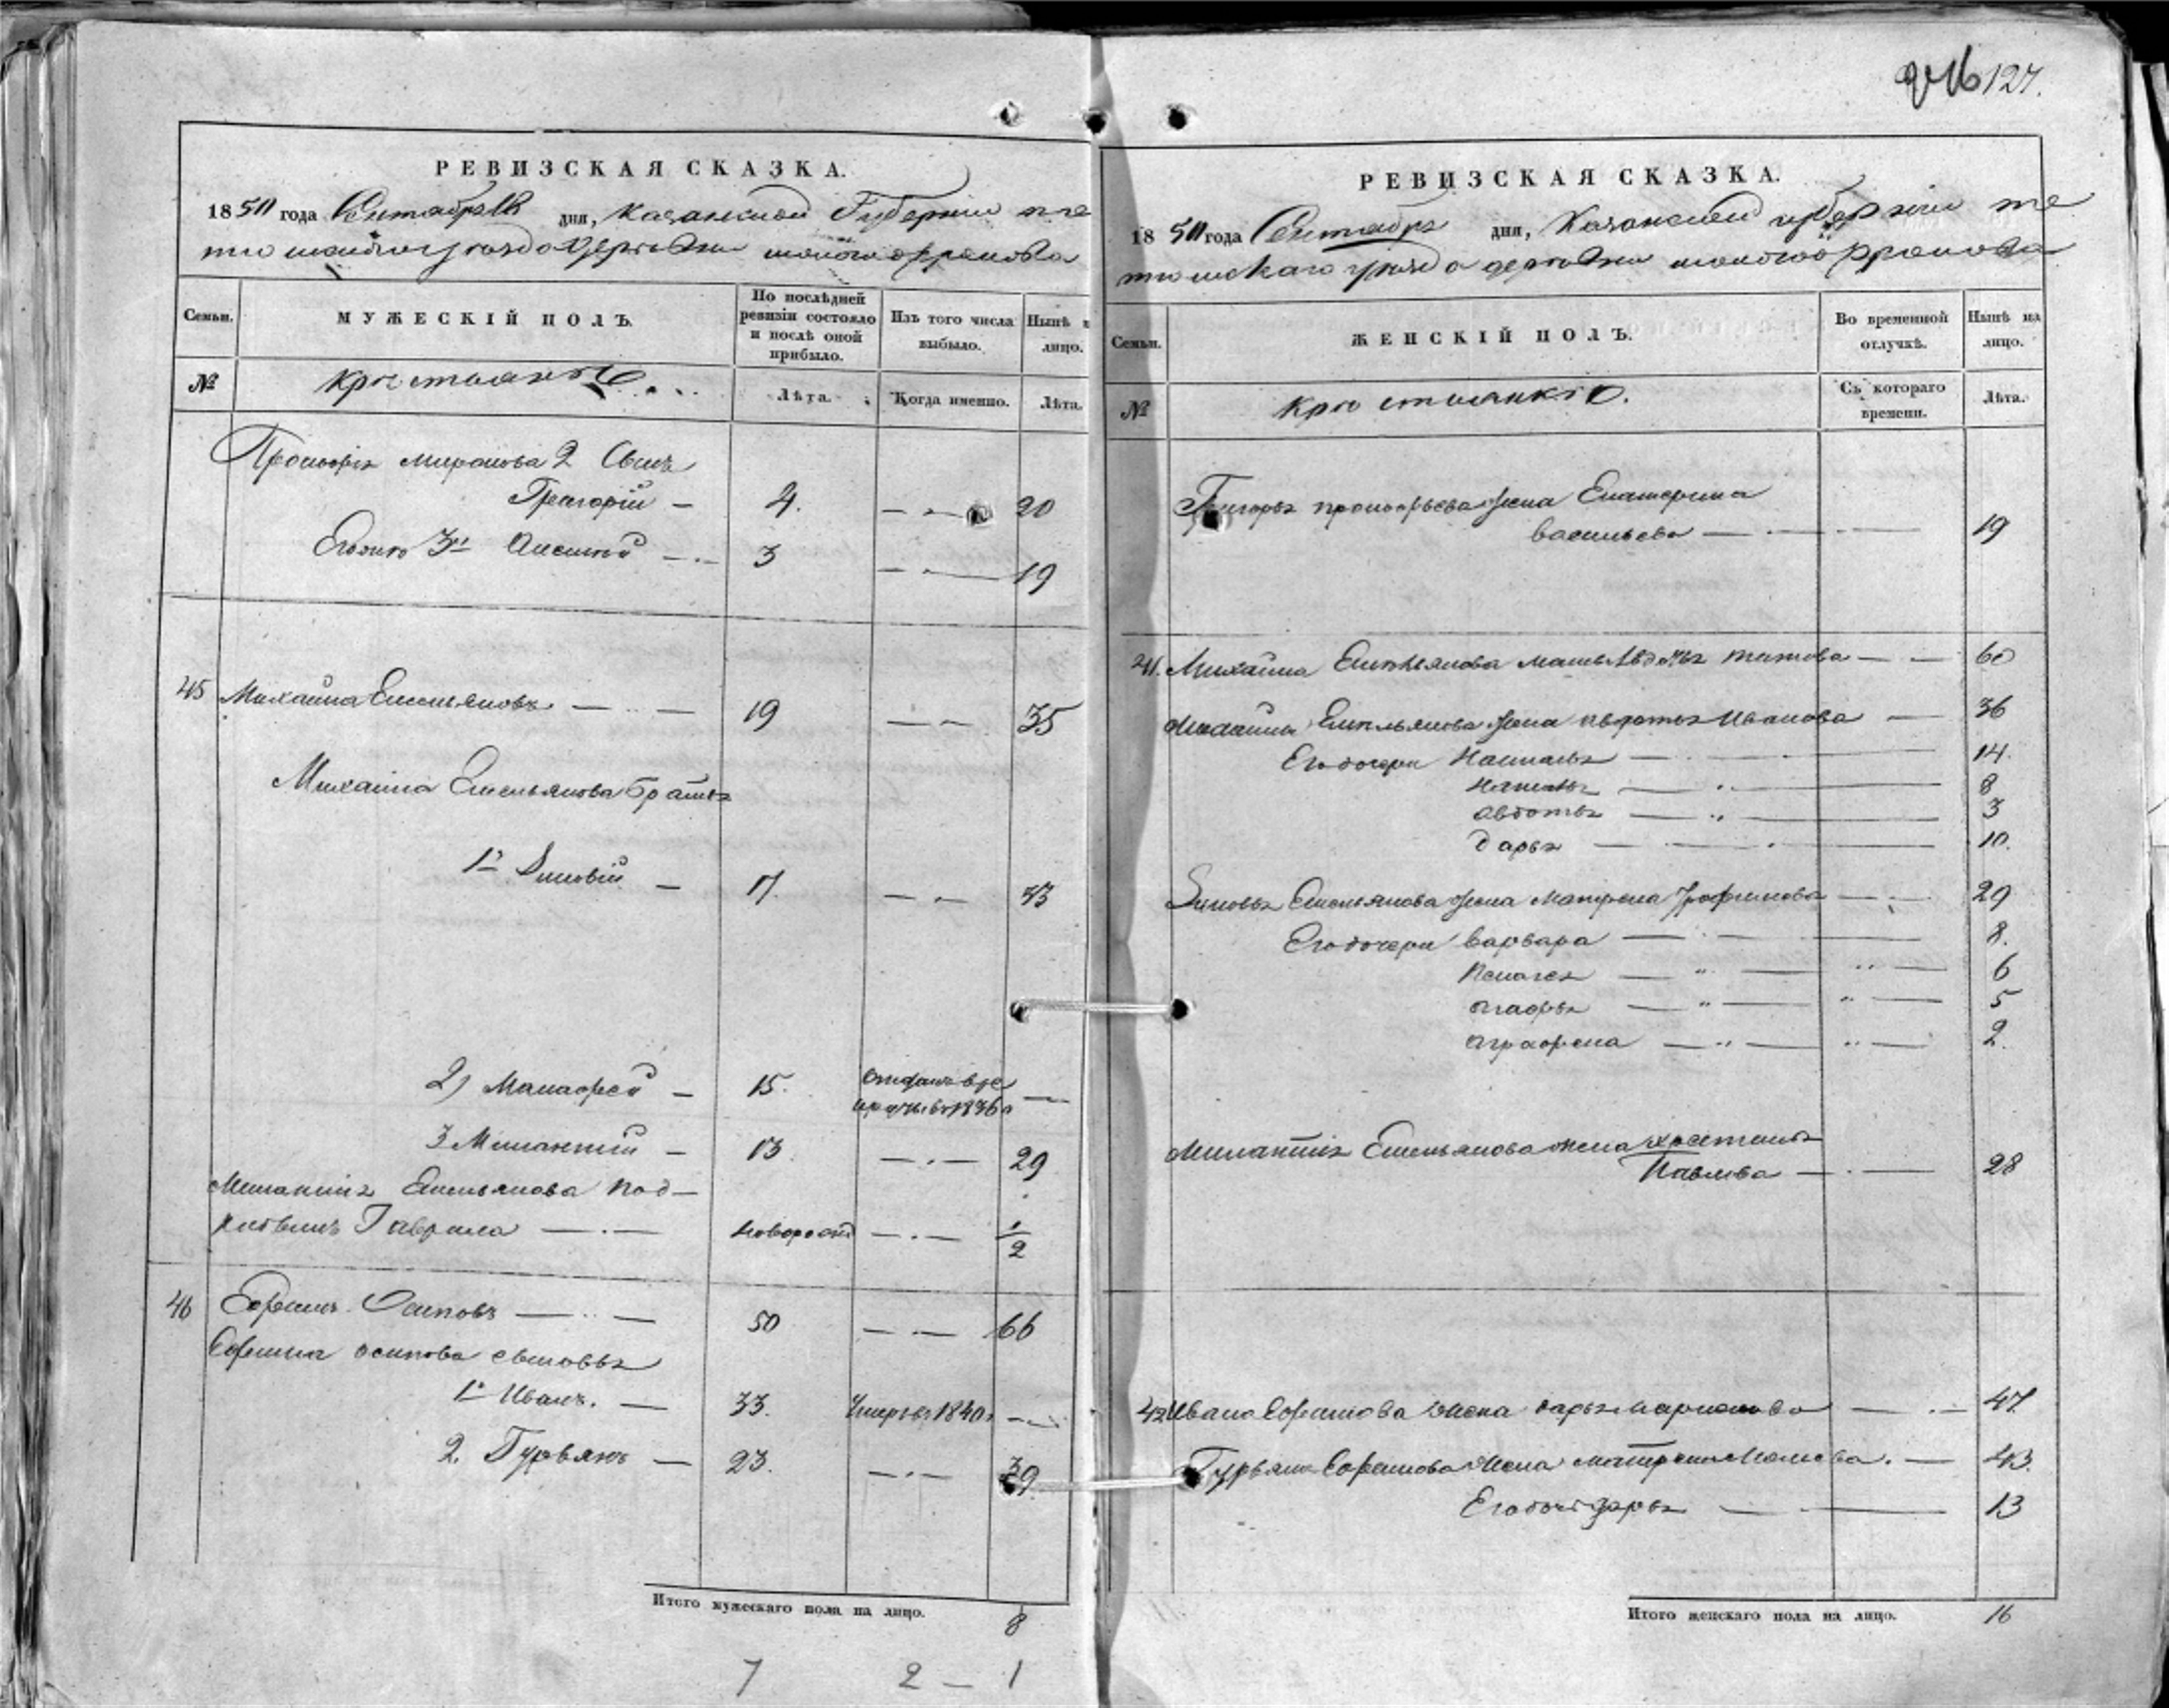 127.
РЕВИЗСКАЯ СКАЗКА.
1850 года Сентября дня, Казанской Губернии те
тюшскаго уезда деревни
Семьи. МУЖЕСКІЙ ПОЛЪ. По послѣдней ревизіи состояло и послѣ оной прибыло. Изъ того числа выбыло. Нынѣ лицо.
№ крестьяне Лѣта. Когда именно. Лѣта.
Прокофья Миронова 2 Сынъ
Григорій — 4. — 20
Егоже 3й Алексей — 3 — 19
45 Михаила Емельяновъ — 19 — 35
Михаила Емельянова братья
1й Зиновій — 17. — 33
2) Малафей — 15. —
3 Милантій — 13. — 29
Милантія Емельянова под-
Гаврила — новорожд — 1/2
46 Ефимъ Осиповъ — 50 — 66
Ефима осипова сыновья
1й Иванъ. — 33. Умеръ 1840 —
2. Гурьянъ — 23. — 39
Итого мужескаго пола на лицо. 8
7 2 — 1
РЕВИЗСКАЯ СКАЗКА.
1850 года Сентября дня, Казанской губернии те
тюшскаго уезда деревни
Семьи. ЖЕНСКІЙ ПОЛЪ. Во временной отлучкѣ. Нынѣ на лицо.
№ крестьянки. Съ котораго времени. Лѣта.
Григорья прокофьева жена Екатерина
васильева — 19
41. Михаила Емельянова мать Авдотья титова — 60
Михаила Емельянова жена Иванова — 36
Его дочери Наталья — 14.
8
Авдотья — 3
Дарья — 10.
Зиновья Емельянова жена Матрена Трофимова — 29
Его дочери Варвара — 8.
Пелагея — 6
Агафья — 5
Аграфена — 2.
Милантія Емельянова жена
Павлова — 28
42 Ивана Ефимова жена дарья — 47.
Гурьяна Ефимова жена матрена — 43.
Его дочь дарья — 13
Итого женскаго пола на лицо. 16